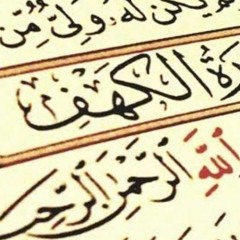 يَكُن لَّهُ وَلِيٌّ مِّنَ
الكهف
اللَّهِ الرَّحْمَٰنِ الرَّحِيمِ